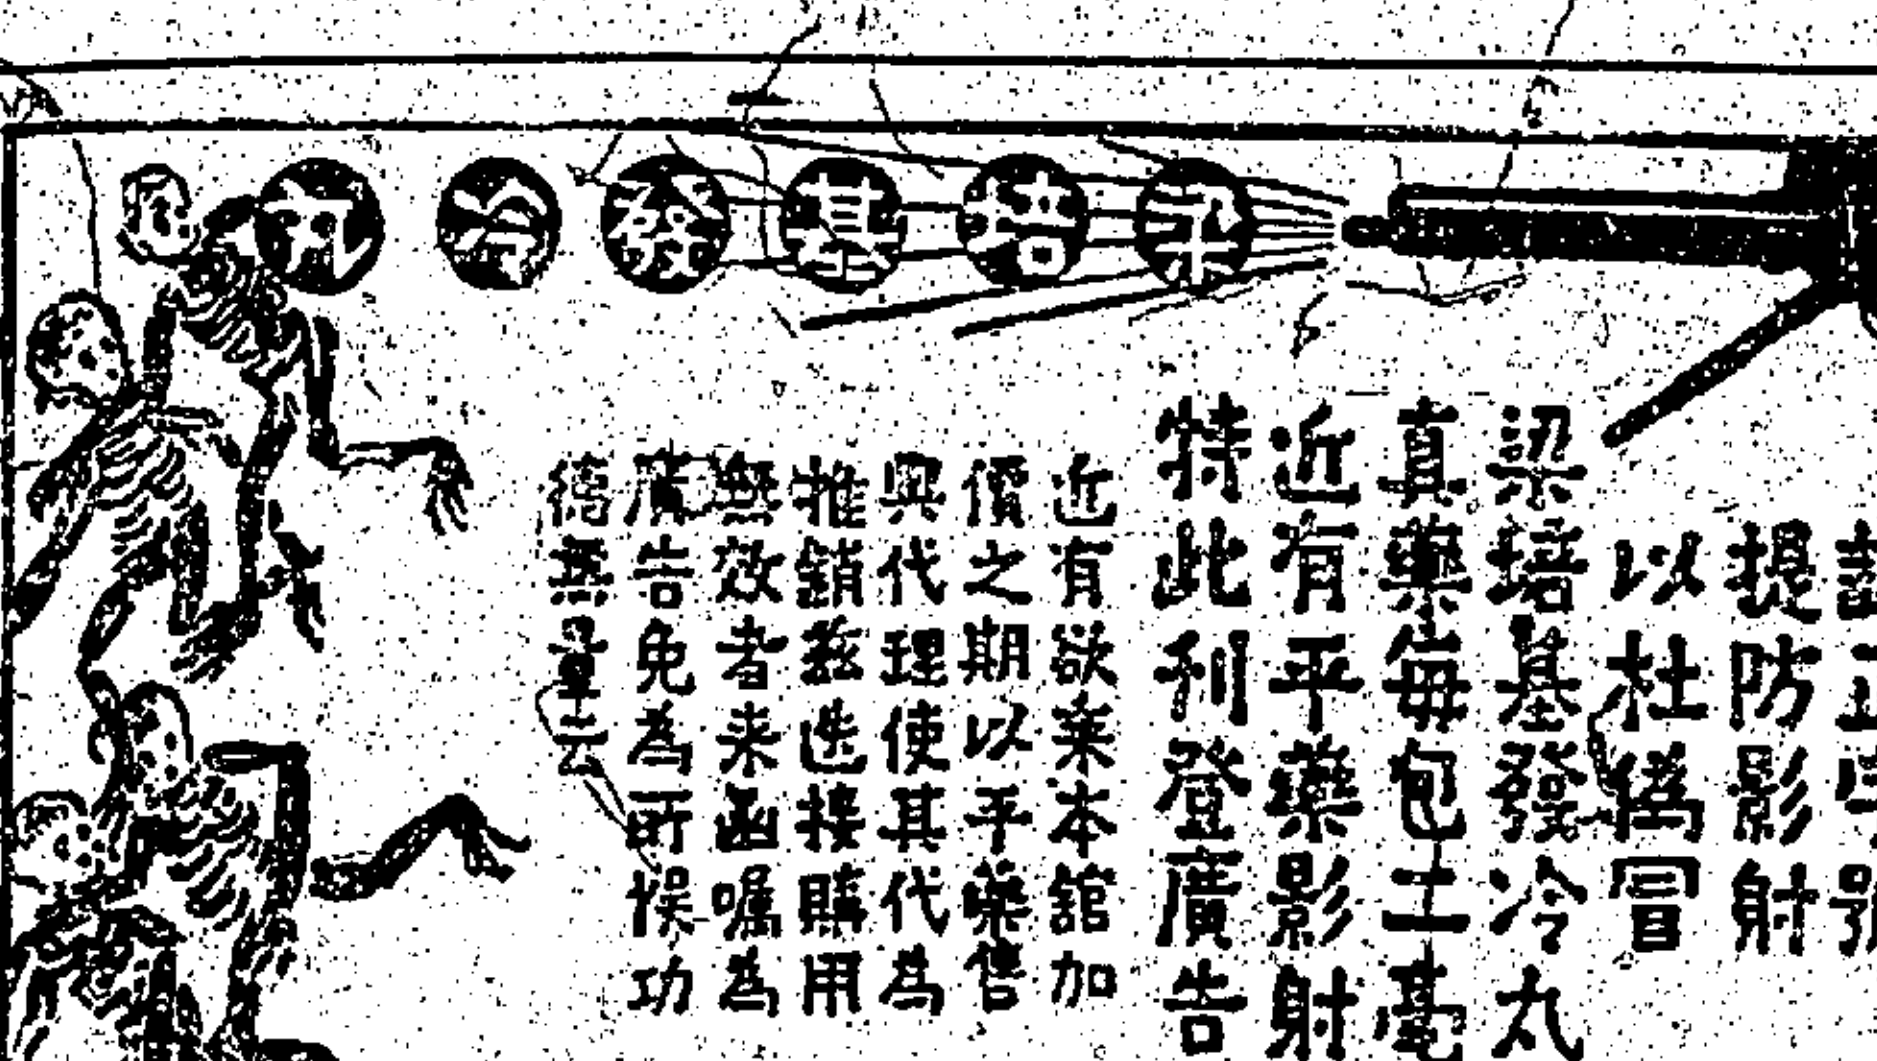 梁培基發冷丸
提防影射
以杜僞冒
梁培基發冷丸
真藥每包二毫
近有平藥影射
特此刊登廣告
近有欲乘本舘加
價之期以平藥售
與代理使其代為
推銷茲迭接購用
無效者来函囑為
廣告免為所悞功
德無量云